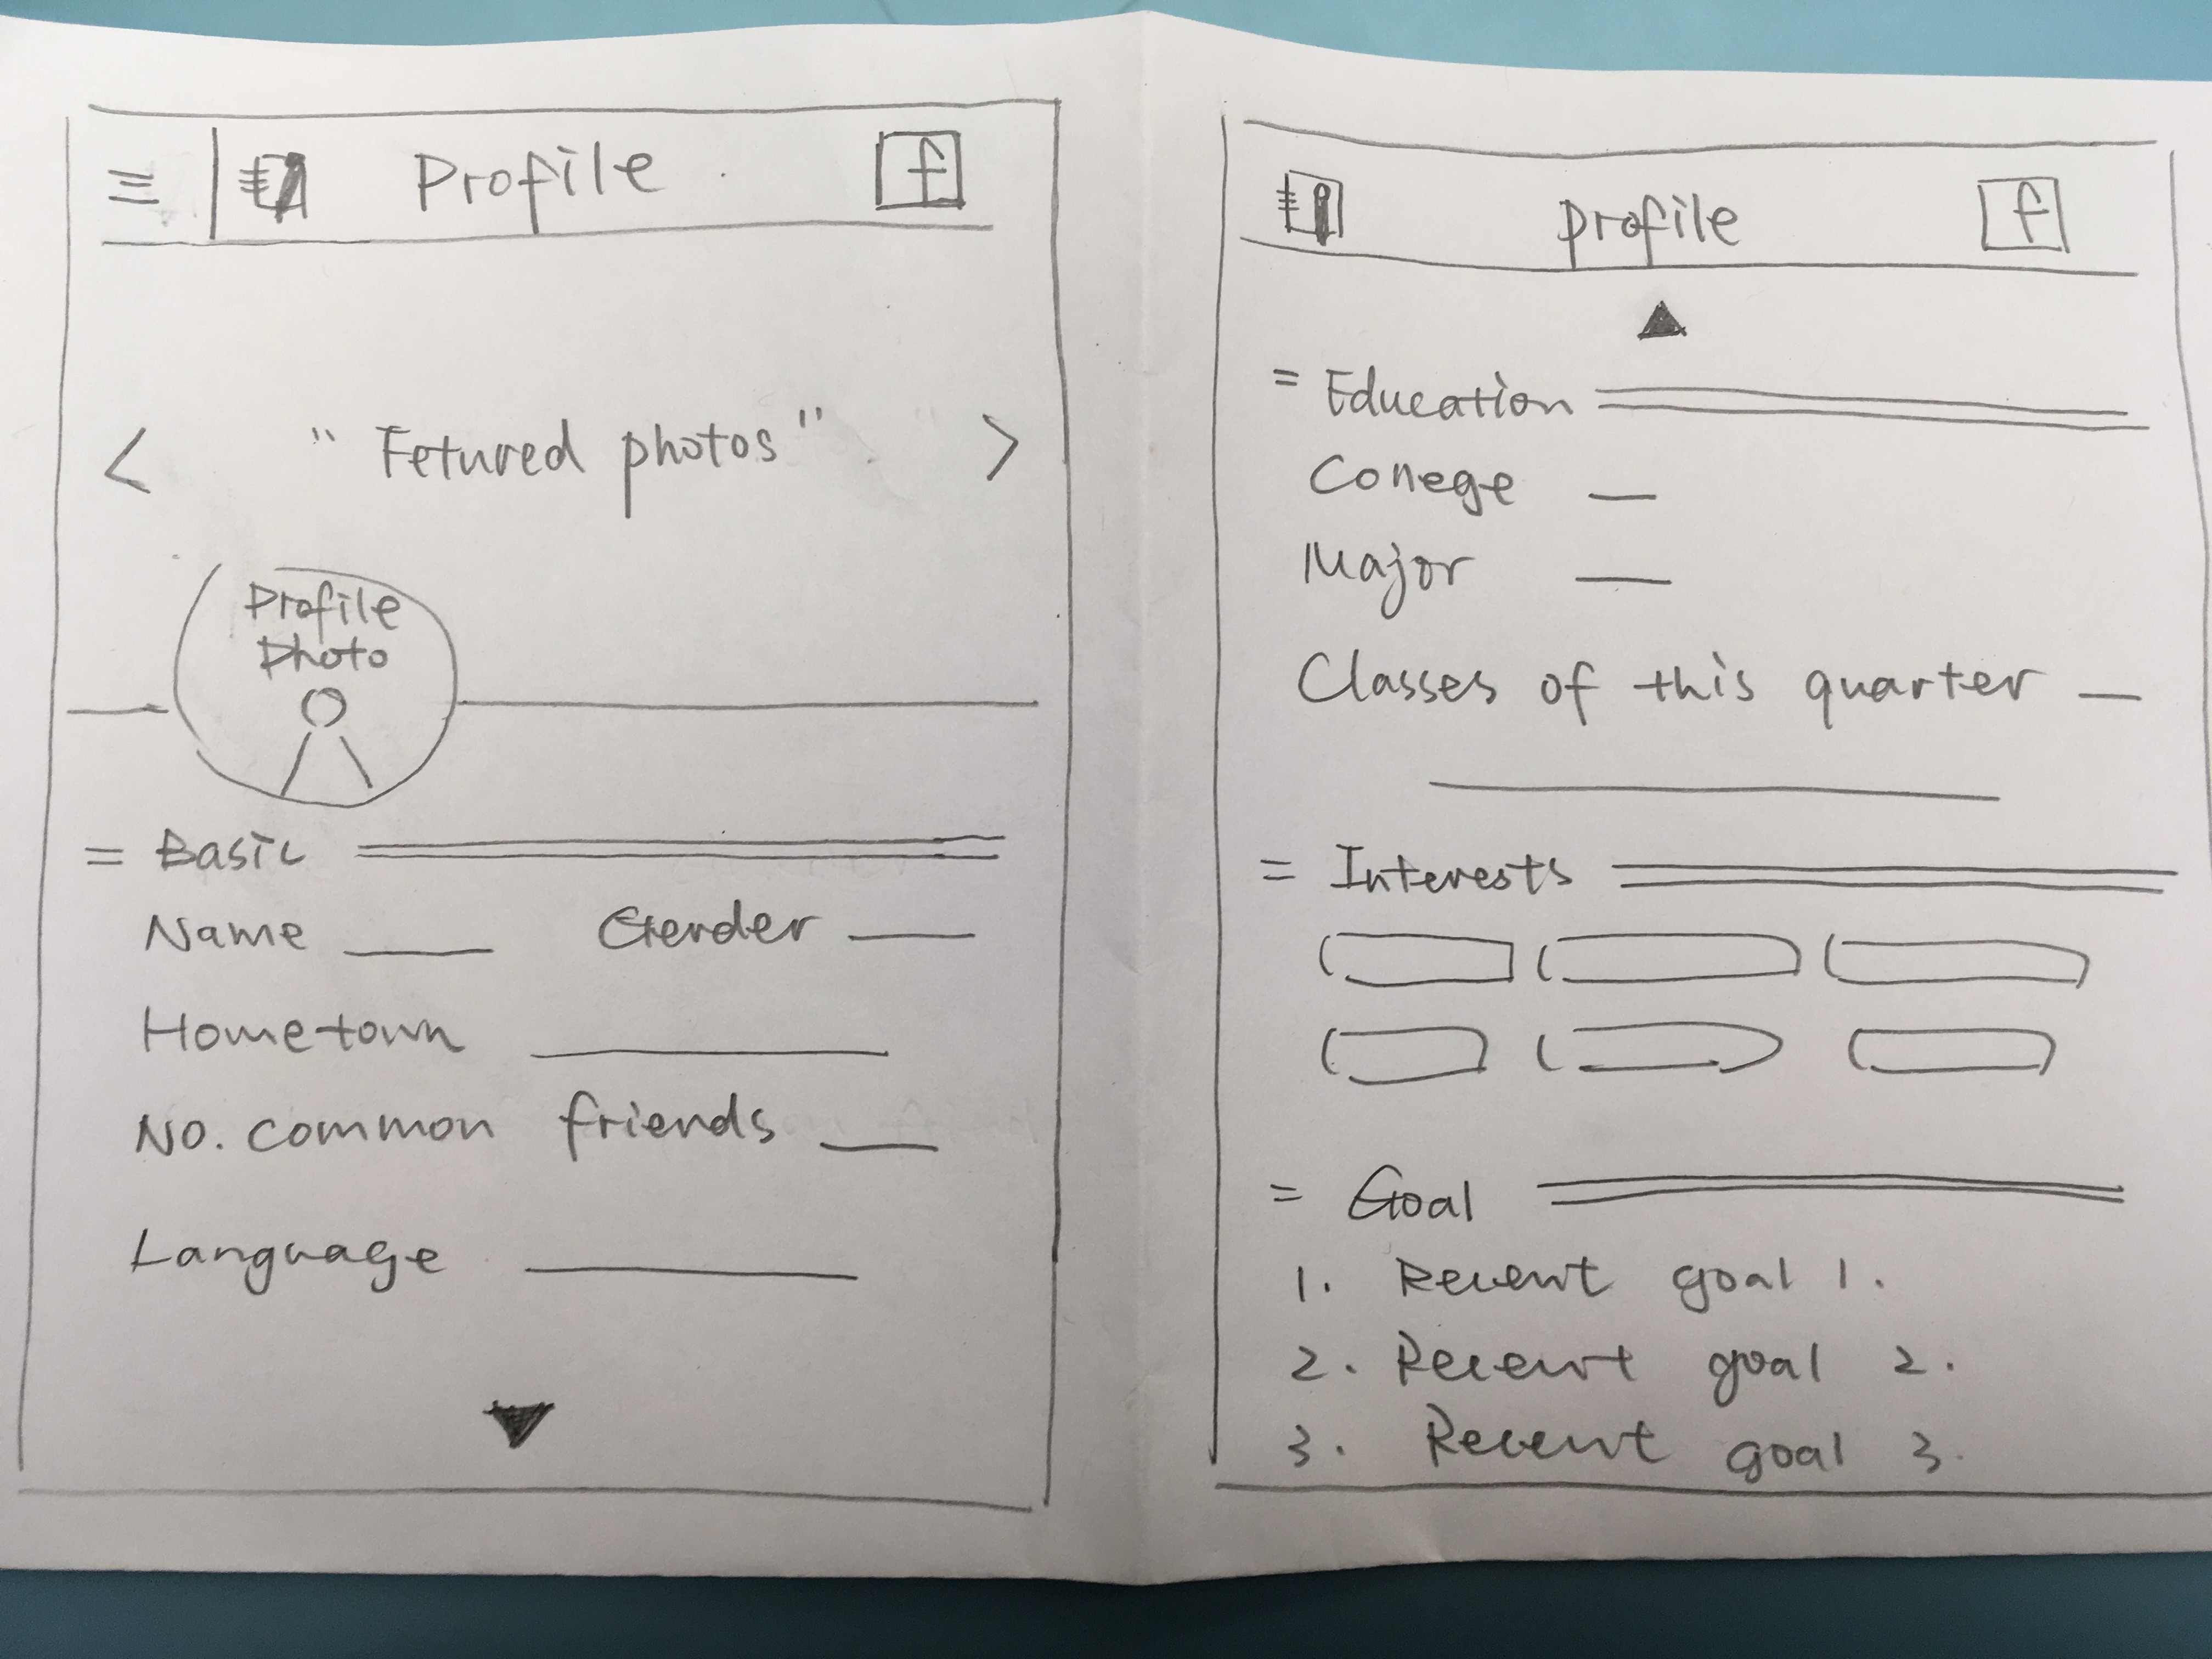 Profile f
" Fetured photos "
Profile
photo
Basic
Name Gender
Hometown
No. common friends
Language
profile f
Education
College
Major
Classes of this quarter
Interests
Goal
1. Recent goal 1.
2. Recent goal 2.
3. Recent goal 3.